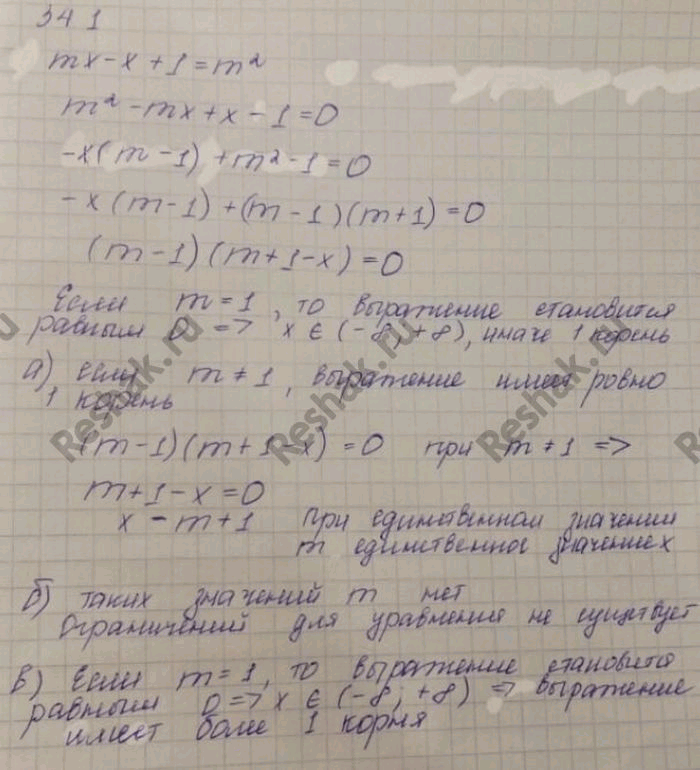 341
mx - x + 1 = m²
m² - mx + x - 1 = 0
-x(m - 1) + m² - 1 = 0
-x(m - 1) + (m - 1)(m + 1) = 0
(m - 1)(m + 1 - x) = 0
Если m = 1, то выражение становится
равным 0 => x ∈ (-8; +8), иначе 1 корень
а) если m ≠ 1, выражение имеет ровно
1 корень
(m - 1)(m + 1 - x) = 0 при m ≠ 1 =>
m + 1 - x = 0
x = m + 1 при единственном значении
m единственное значение x
б) таких значений m нет
Ограничений для уравнения не существует
в) Если m = 1, то выражение становится
равным 0 => x ∈ (-8; +8) => выражение
имеет более 1 корня
Reshak.ru
Reshak.ru
Reshak.ru